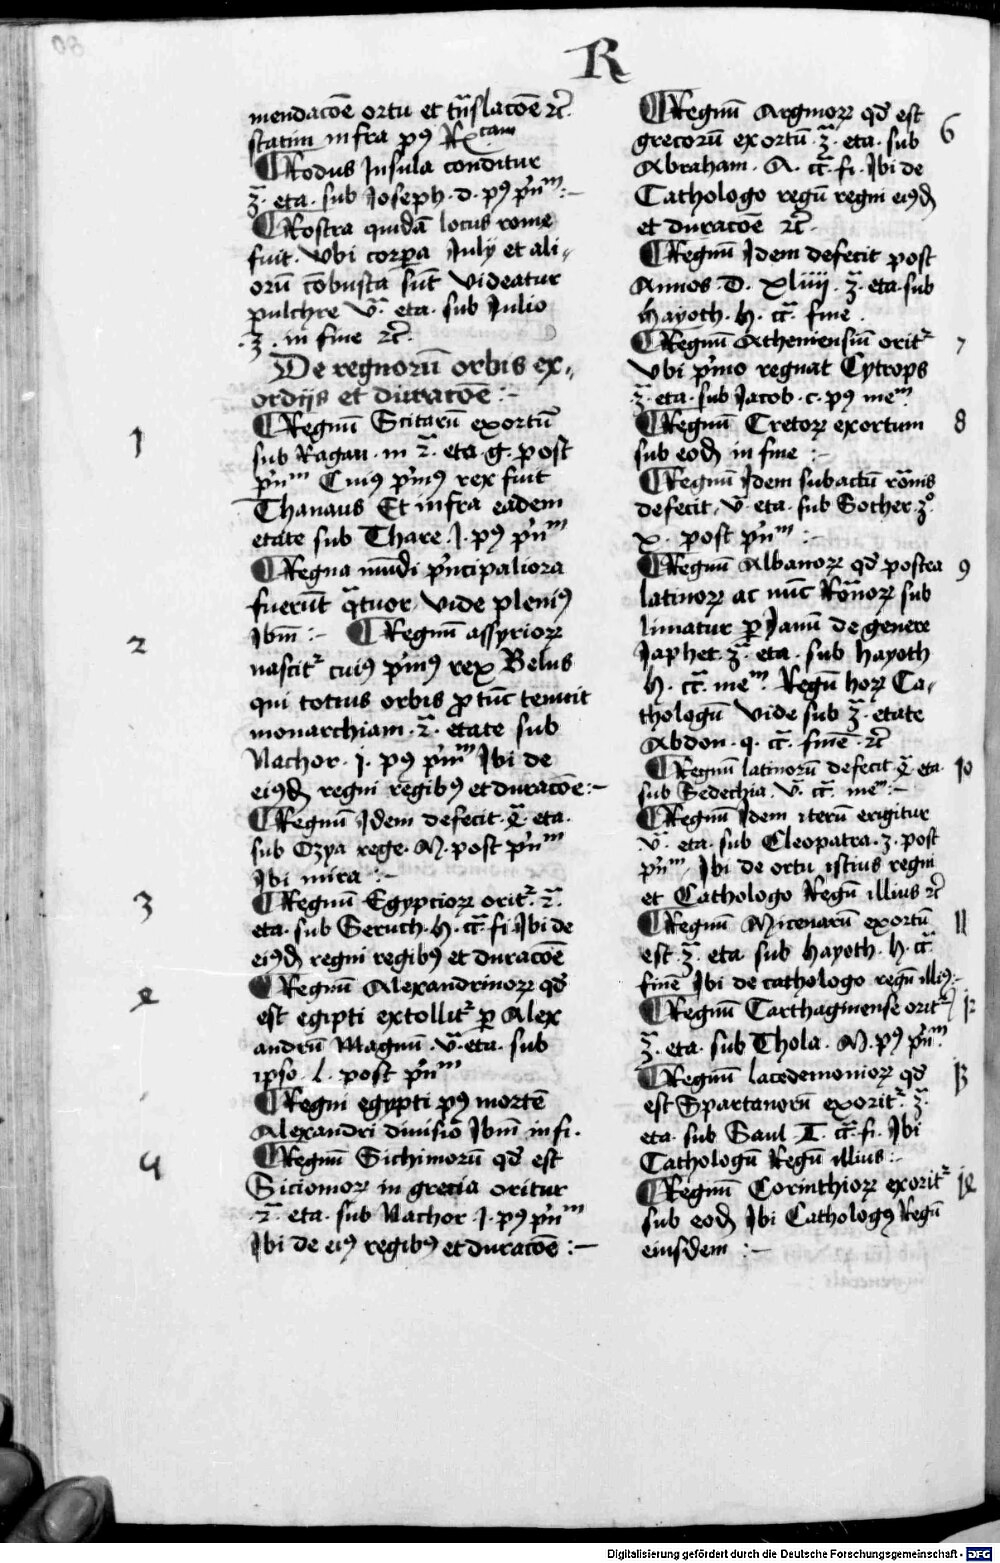 R
mendacōe ortu et tn̄slacōe ꝛc̄.
statim infra pꝰ
¶ Rodus Insula conditur
3ᵃ. eta. sub Joseph. d. pꝰ pn̄ᵐ :-
¶ Rostra quidā locus rome
fuit. Vbi corpora Julij et ali-
orū cōbusta sūt Videatur
pulchre Vᵃ. eta. sub Julio
.3. in fine ꝛc̄.
De regnorū orbis ex-
ordijs et duracōe :-
1
¶ Regnū Scitarū exortū
sub Ragau. in 2ᵃ. eta. g. post
pn̄ᵐ Cuiꝰ pⁱmꝰ rex fuit
Thanaus Et infra eadem
etate sub Thare. J. pꝰ pn̄ᵐ
¶ Regna mūdi pⁱncipaliora
fuerūt qᵃtuor, Vide pleniꝰ
Ibm̄ :- ¶ Regnū assyrioꝝ
2
nascitʳ cuiꝰ pⁱmꝰ rex Belus
qui totius orbis pro tūc tenuit
monarchiam. 2ᵃ. etate sub
Nachor. j. pꝰ pn̄ᵐ Ibi de
eiꝰdē regni regibꝰ et duracōe :-
¶ Regnū Idem defecit. 4ᵃ. eta.
sub Ozya rege. M. post pn̄ᵐ
Ibi mira :-
3
¶ Regnū Egyptioꝝ oritʳ. 2ᵃ.
eta. sub Seruch. h. cc̄. fi. Ibi de
eiꝰdē regni regibꝰ et duracōe
¶ Regnū Alexandrinoꝝ qd̄
est egipti extollitʳ per Alex
andrū Magnū. Vᵃ. eta. sub
ipso. l. post pn̄ᵐ
¶ Regni egypti pꝰ mortē
Alexandri diuisio Ibm̄ in fi.
4
¶ Regnū Sichimorū qd̄ est
Sicionioꝝ in grecia oritur
.2ᵃ. eta. sub Nachor. J. pꝰ pn̄ᵐ
Ibi de eiꝰ regibꝰ et duracōe :-
¶ Regnū Argiuoꝝ qd̄ est
6
grecorū exortū. 3ᵃ. eta. sub
Abraham. A. cc̄. fi. Ibi de
Cathologo regū regni eiꝰdē
et duracōe ꝛc̄.
¶ Regnū Idem defecit post
Annos. D. xliiij. 3ᵃ. eta. sub
hayoth. h. cc̄. fine.
¶ Regnū Atheniensiū oritʳ
7
Vbi pⁱmo regnat Cytrops
3ᵃ. eta. sub Jacob. c. pꝰ meᵐ
¶ Regnū Cretoꝝ exortum
8
sub eodē in fine :-
¶ Regnū Idem subactū romīs
defecit. Vᵃ. eta. sub Sother. 3º.
x. post pn̄ᵐ :-
¶ Regnū Albanoꝝ qd̄ postea
9
latinoꝝ ac nūc Romanoꝝ sub
limatur per Janū de genere
Japhet. 3ᵃ. eta. sub hayoth
h. cc̄. meᵐ. Regū hoꝝ Ca-
thologū Vide sub 3ᵃ. etate
Abdon. q. cc̄. finē ꝛc̄
¶ Regnū latinorū defecit. 4ᵃ. eta.
10
sub Sedechia. Vᵃ. cc̄. meᵐ :-
¶ Regnū Idem iterū erigitur
Vᵃ. eta. sub Cleopatra. 3. post
pn̄ᵐ, Ibi de ortu istius regni
et Cathologo Regū illius ꝛc̄
¶ Regnū Micenarū exortū
11
est. 3ᵃ. eta. sub hayoth. h. cc̄.
finē Ibi de cathologo regū illiꝰ :-
¶ Regnū Carthaginense oritʳ
12
3ᵃ. eta. sub Thola. M. pꝰ pn̄ᵐ.
¶ Regnū lacedemonioꝝ qd̄
13
est Spartanorū exoritʳ. 3ᵃ.
eta. sub Saul. T. cc̄. fi. Ibi
Cathologū Regū illius :-
¶ Regnū Corinthioꝝ exoritʳ
14
sub eodē Ibi Cathologꝰ Regū
eiusdem :-
Digitalisierung gefördert durch die Deutsche Forschungsgemeinschaft - DFG